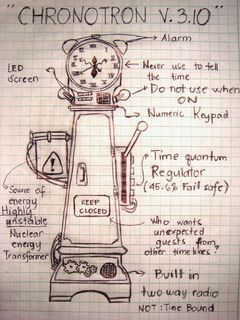 "CHRONOTRON V.3.10"
Alarm
LED
Screen
Never use to tell
the time
Do not use when
ON
Numeric Keypad
Time quantum
Regulator
(45.6% Fail safe)
Source of
energy
Highly
unstable
Nuclear
energy
Transformer
KEEP
CLOSED
Who wants
unexpected
guests from
other timelines?
Built in
two way radio
NOT: Time Bound